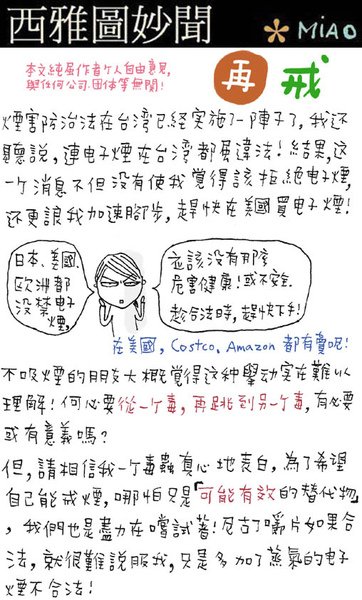 西雅圖妙聞 * MiAO
本文純屬作者个人自由意見，
與任何公司、団体等無関！
再戒
煙害防治法在台湾已經実施了一陣子了，我还
聽説，連电子煙在台湾都屬違法！結果，这
一个消息不但没有使我覺得該拒絶电子煙，
还更讓我加速腳步，趕快在美國買电子煙！
日本、美國、
欧洲都
没禁电子
煙，
应該没有那麼
危害健康！或不安全
趁合法時，趕快下手！
在美國，Costco、Amazon 都有賣呢！
不吸煙的朋友大概覺得这种舉动实在難以
理解！何必要從一个毒，再跳到另一个毒，有必要
或有意義嗎？
但，請相信我一个毒蟲真心地表白，為了希望
自己能戒煙，哪怕只是「可能有效」的替代物，
，我們也是盡力在嚐試著！尼古丁嚼片如果合
法，就很難說服我，只是多加了蒸氣的电子
煙不合法！